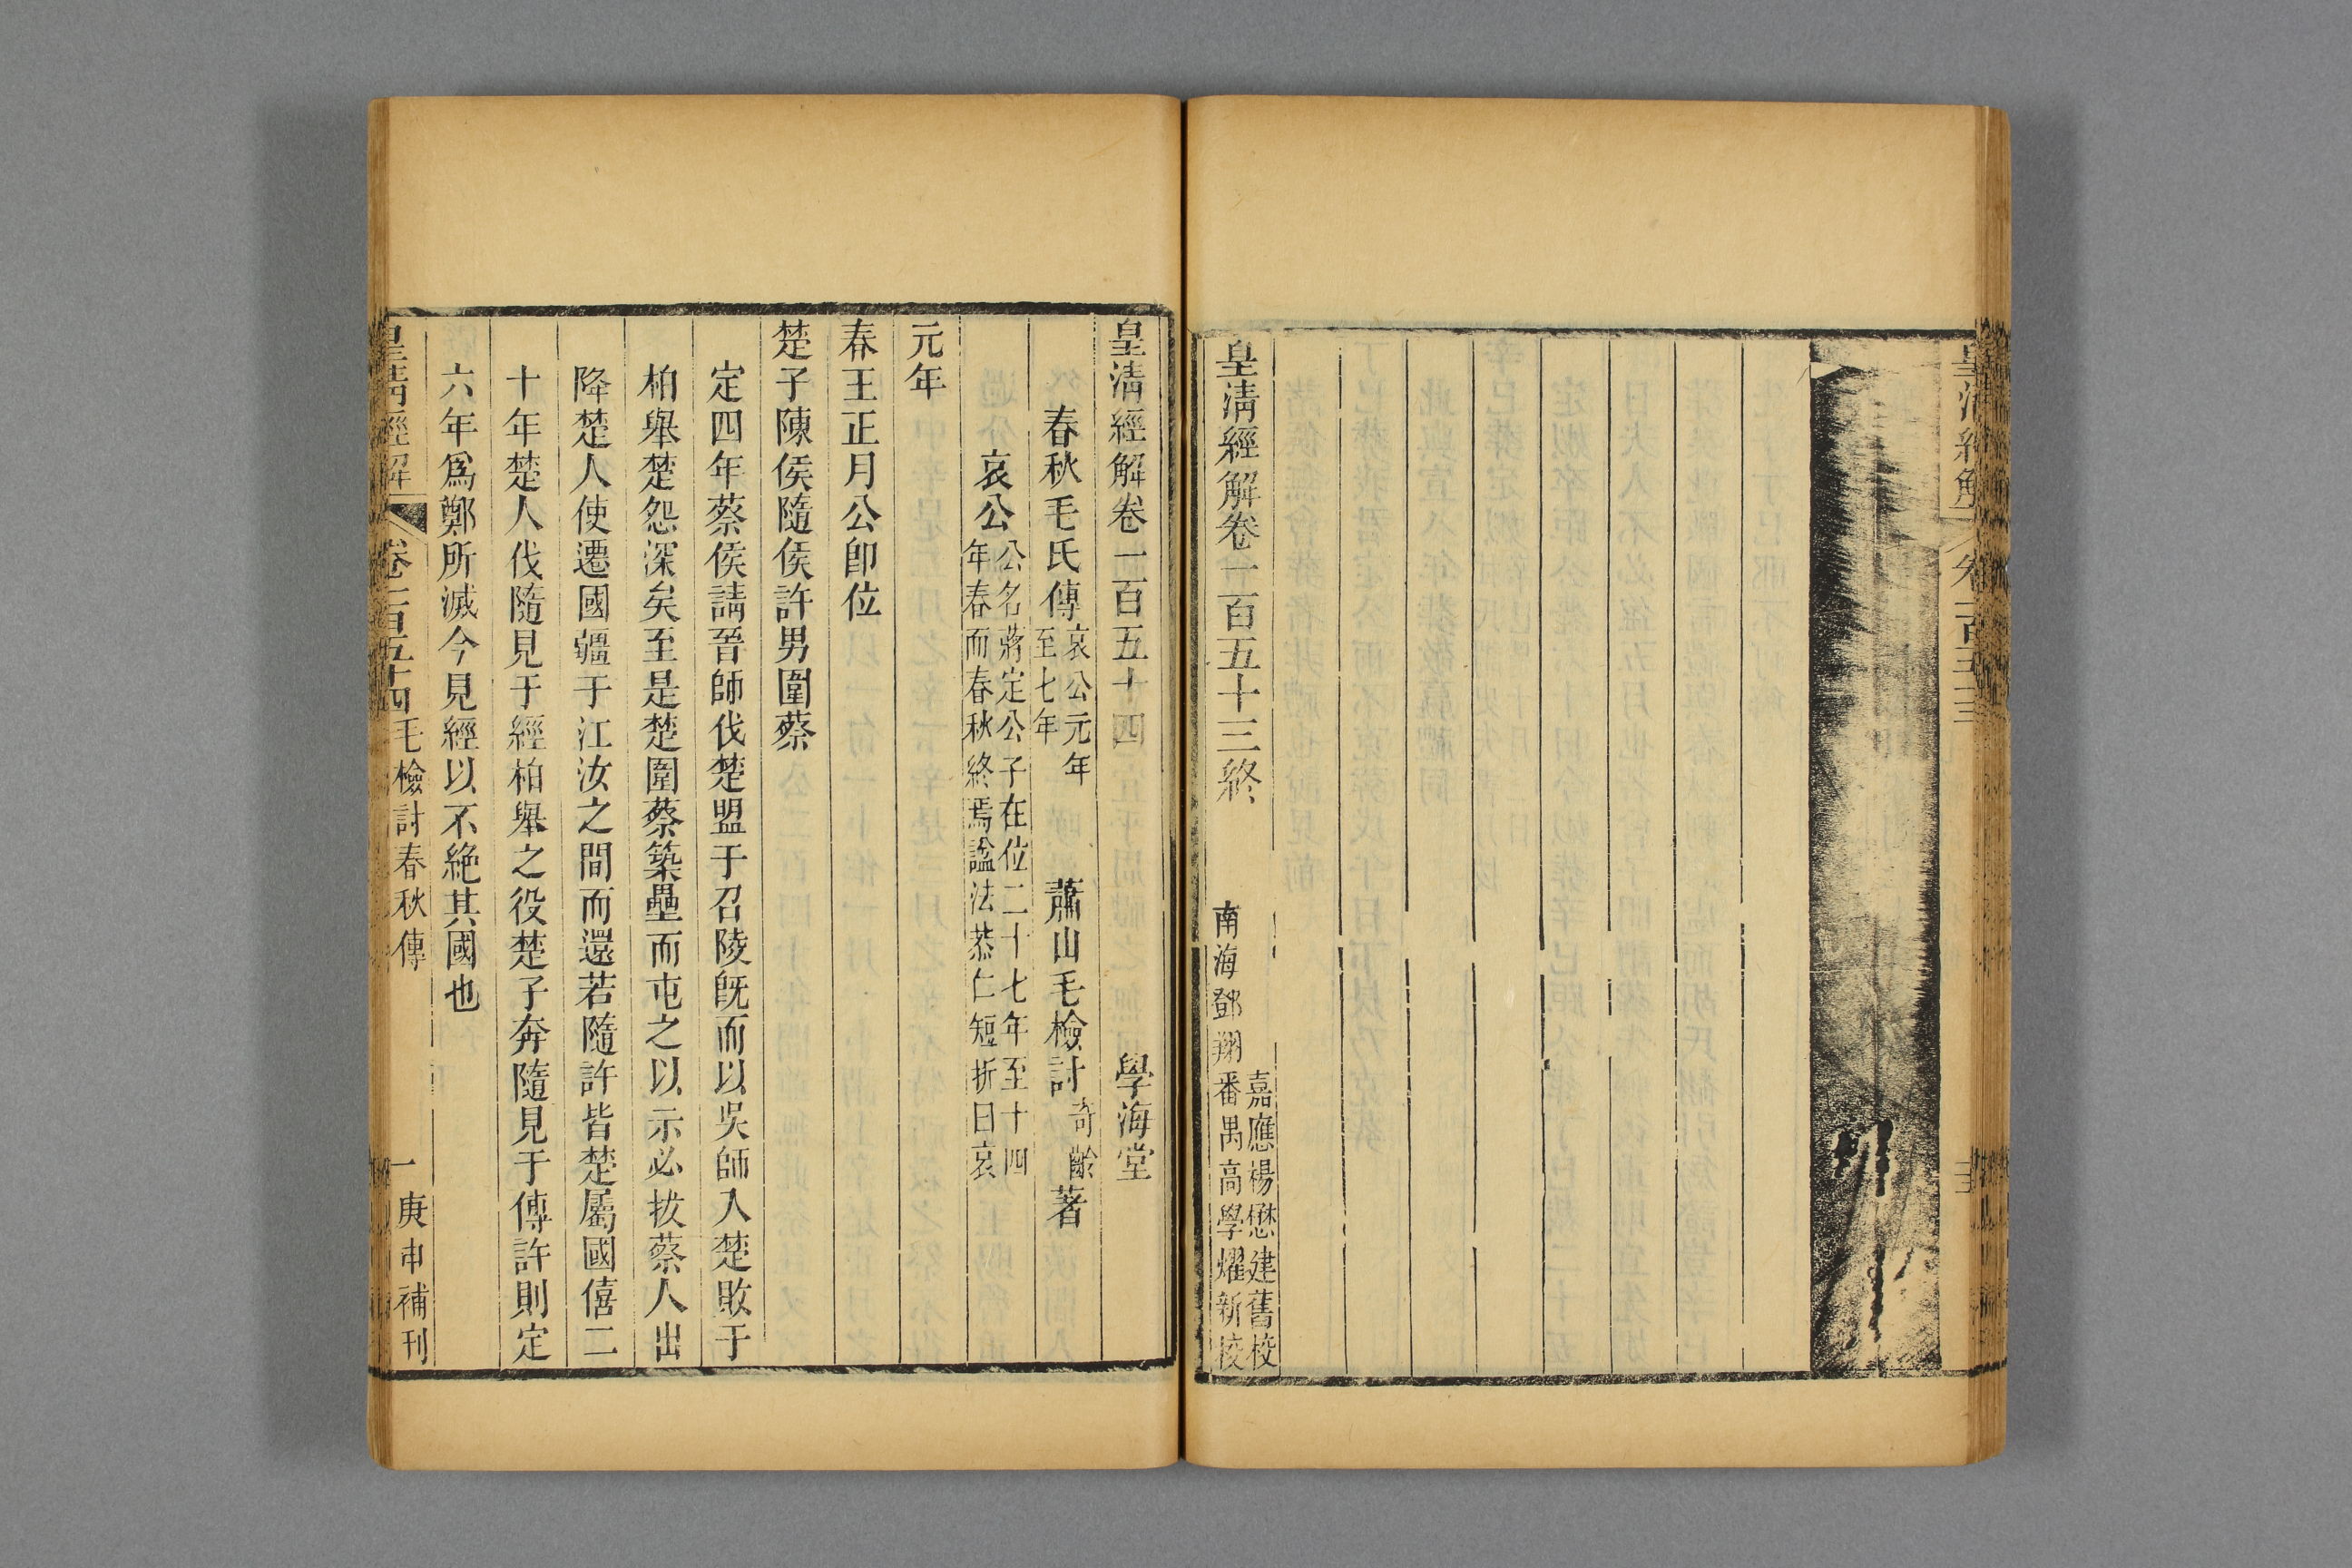 皇清經解
卷一百五十三
皇清經解卷一百五十三終
嘉應楊懋建舊校
南海鄧翔番禺高學燿新校
皇清經解卷一百五十四
學海堂
春秋毛氏傳
哀公元年
至七年
蕭山毛檢討奇齡著
哀公
公名蔣定公子在位二十七年至十四
年春而春秋終焉諡法恭仁短折曰哀
元年
春王正月公卽位
楚子陳侯隨侯許男圍蔡
定四年蔡侯請晉師伐楚盟于召陵旣而以吳師入楚敗于
柏舉楚怨深矣至是楚圍蔡築壘而屯之以示必拔蔡人出
降楚人使遷國疆于江汝之間而還若隨許皆楚屬國僖二
十年楚人伐隨見于經柏舉之役楚子奔隨見于傳許則定
六年爲鄭所滅今見經以不絶其國也
皇清經解
卷一百五十四
毛檢討春秋傳
一
庚申補刊